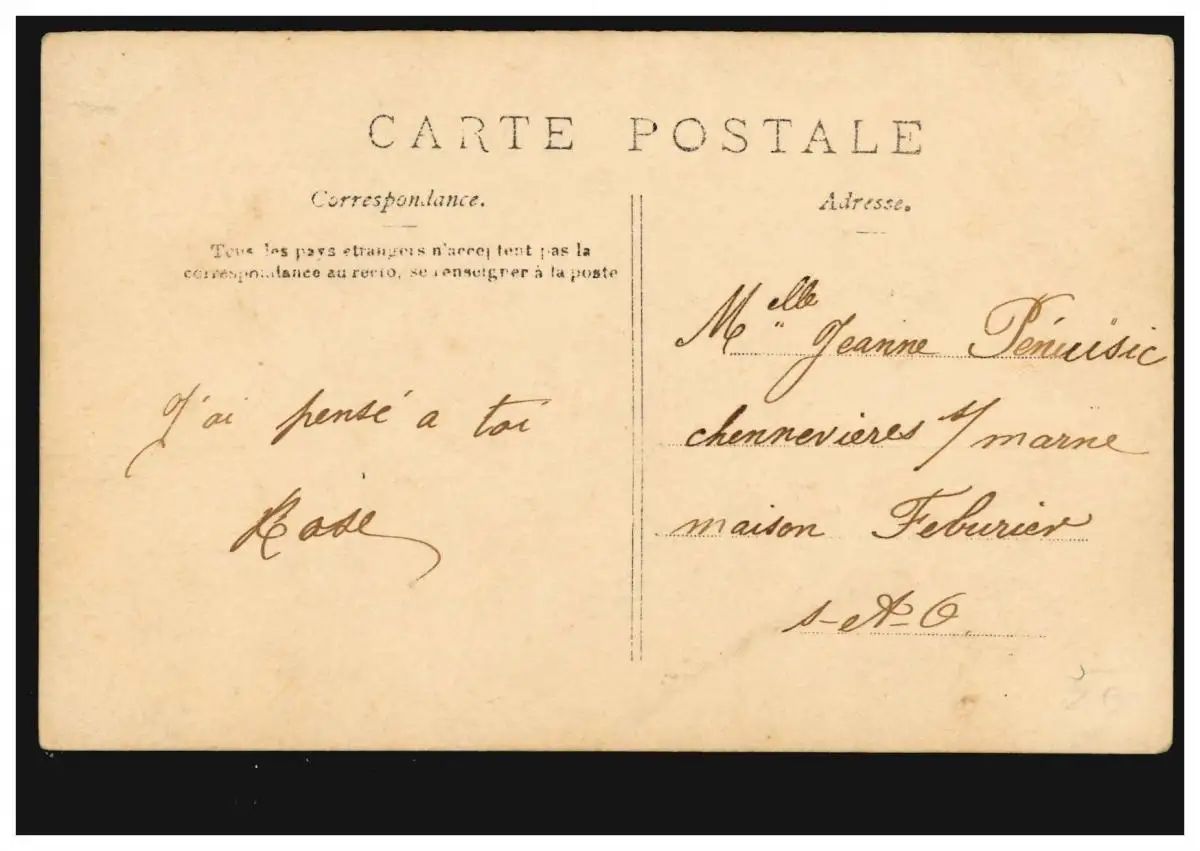 CARTE POSTALE
Correspondance.
Tous les pays étrangers n'acceptent pas la
correspondance au recto, se renseigner à la poste
J'ai pensé a toi
Rose
Adresse.
Melle Jeanne
chennevieres s/ marne
maison Feburier
s-et-O